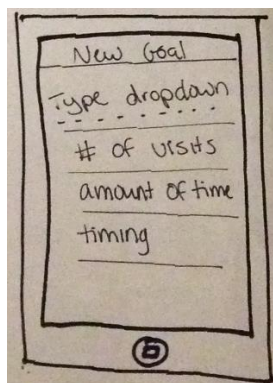 New Goal
Type dropdown
# of visits
amount of time
timing